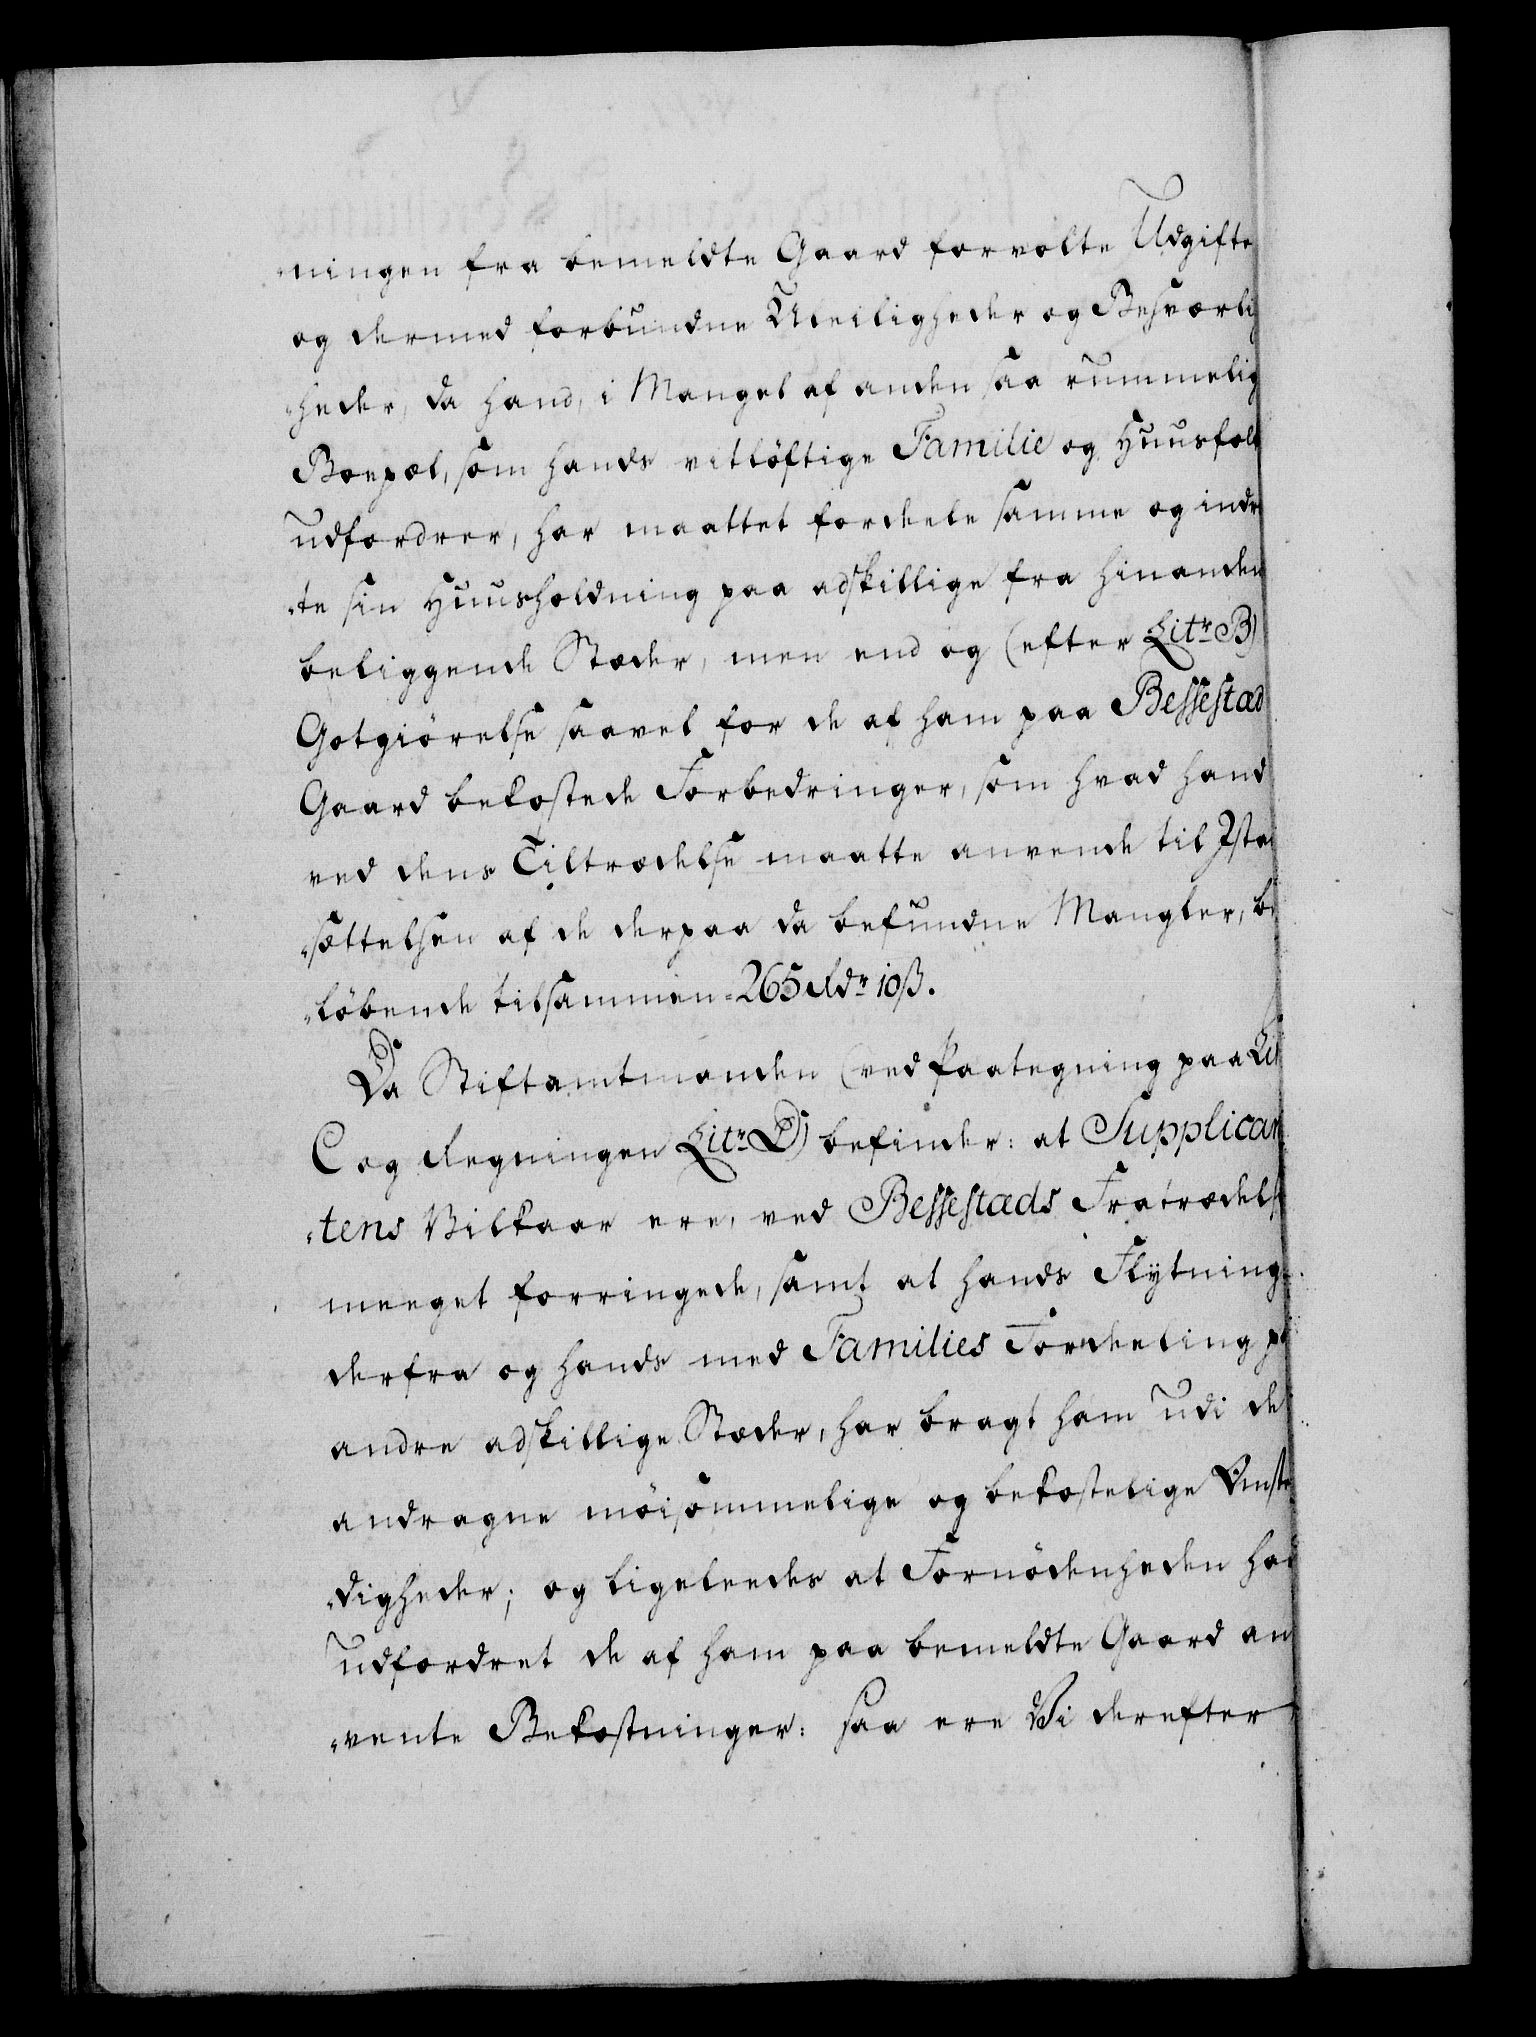 -ningen fra bemeldte Gaard forvolte Udgifte
og dermed forbundne Uleiligheder og Besværlig
-heder, da hand, i Mangel af anden saa rummelig
Boepæl, som hands vitløftige Familie og Huusfolk
udfordrer, har maattet fordeele samme og indr
-te sin Huusholdning paa adskillige fra hinanden
beliggende Stæder, men end og (efter Litr. B)
Gotgiørelse saavel for de af ham paa Bessestæd
Gaard bekostede Forbedringer, som hvad hand
ved dens Tiltrædelse maatte anvende til Ista
-sættelsen af de derpaa da befundne Mangler, be
-løbende tilsammen 265 Rdr 10 ß.
Da Stiftamtmanden (ved Paategning paa Lit
C og Regningen Litr. D) befinder: at Supplican
-tens Vilkaar ere, ved Bessestæds Fratrædels
meeget forringede, samt at hands Flytning
derfra og hands med Families Fordeeling pa
andre adskillige Stæder, har bragt ham udi de
andragne møisommelige og bekostelige Omstæ
-digheder; og ligeleedes at Fornødenheden had
udfordret de af ham paa bemeldte Gaard an
-vente Bekostninger: saa ere Vi derefter